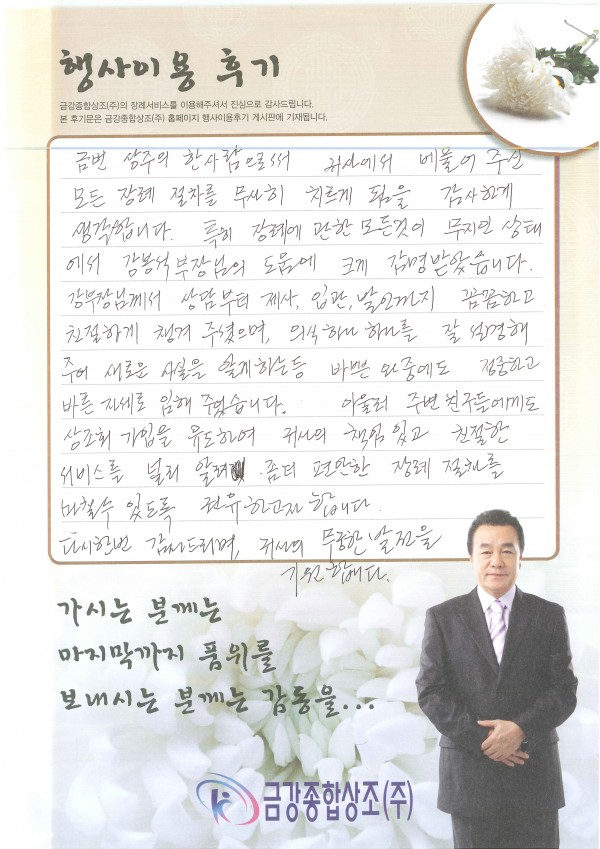 행사이용 후기
금강종합상조(주)의 장례서비스를 이용해주셔서 진심으로 감사드립니다.
본 후기문은 금강종합상조(주) 홈페이지 행사이용후기 게시판에 기재됩니다.
금번 상주의 한사람으로써 귀사에서 베풀어 주신
모든 장례 절차를 무사히 치르게 됨을 감사하게
생각합니다. 특히 장례에 관한 모든것이 무지한 상태
에서 강봉석부장님의 도움에 크게 감명받았습니다.
강부장님께서 상담부터 제사, 입관, 발인까지 꼼꼼하고
친절하게 챙겨 주셨으며, 의식하나 하나를 잘 설명해
주어 새로운 사실을 알게하는등 바쁜 와중에도 정중하고
바른 자세로 임해 주었습니다. 아울러 주변 친구들에게도
상조회 가입을 유도하여 귀사의 책임 있고 친절한
서비스를 널리 알려 좀더 편안한 장례 절차를
마칠수 있도록 권유하고자 합니다.
다시한번 감사드리며, 귀사의 무궁한 발전을
기원합니다.
가시는 분께는
마지막까지 품위를
보내시는 분께는 감동을...
금강종합상조(주)